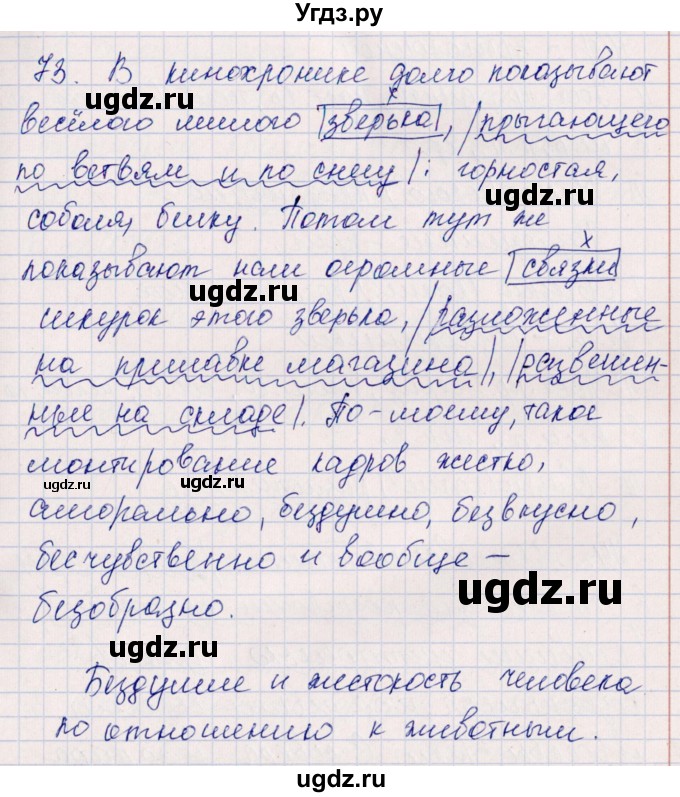 Угдз.ру
73. В кинохронике долго показывают
ugdz.ru
весёлого милого зверька, /прыгающего
по ветвям и по снегу/: горностая,
ugdz.ru
соболя, белку. Потом тут же
показывают нам огромные связки
ugdz.ru
шкурок этого зверька, /разложенные
на прилавке магазина/, /развешен-
ные на складе/. По-моему, такое
монтирование кадров жестко,
ugdz.ru ugdz.ru
аморально, бездушно, безвкусно,
бесчувственно и вообще –
ugdz.ru
безобразно.
ugdz.ru
Бездушие и жестокость человека
по отношению к животным.
ugdz.ru